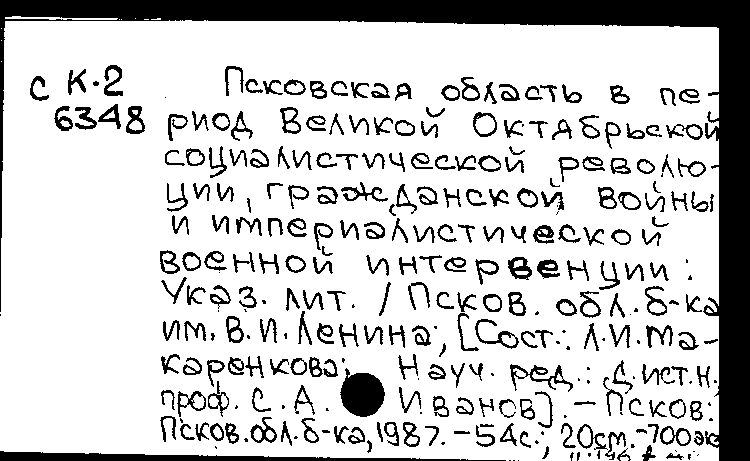 с К-2
6348
Псковская область в пе-
риод Великой Октябрьской
социалистической револю-
ции, гражданской войны
и империалистической
военной интервенции:
Указ. лит. / Псков. обл. б-ка
им. В.И. Ленина; [Сост.: Л.И. Ма-
каренкова; Науч. ред.: д. ист. н.,
проф. С.А. Иванов]. - Псков:
Псков. обл. б-ка, 1987. - 54с.; 20см. - 700 экз